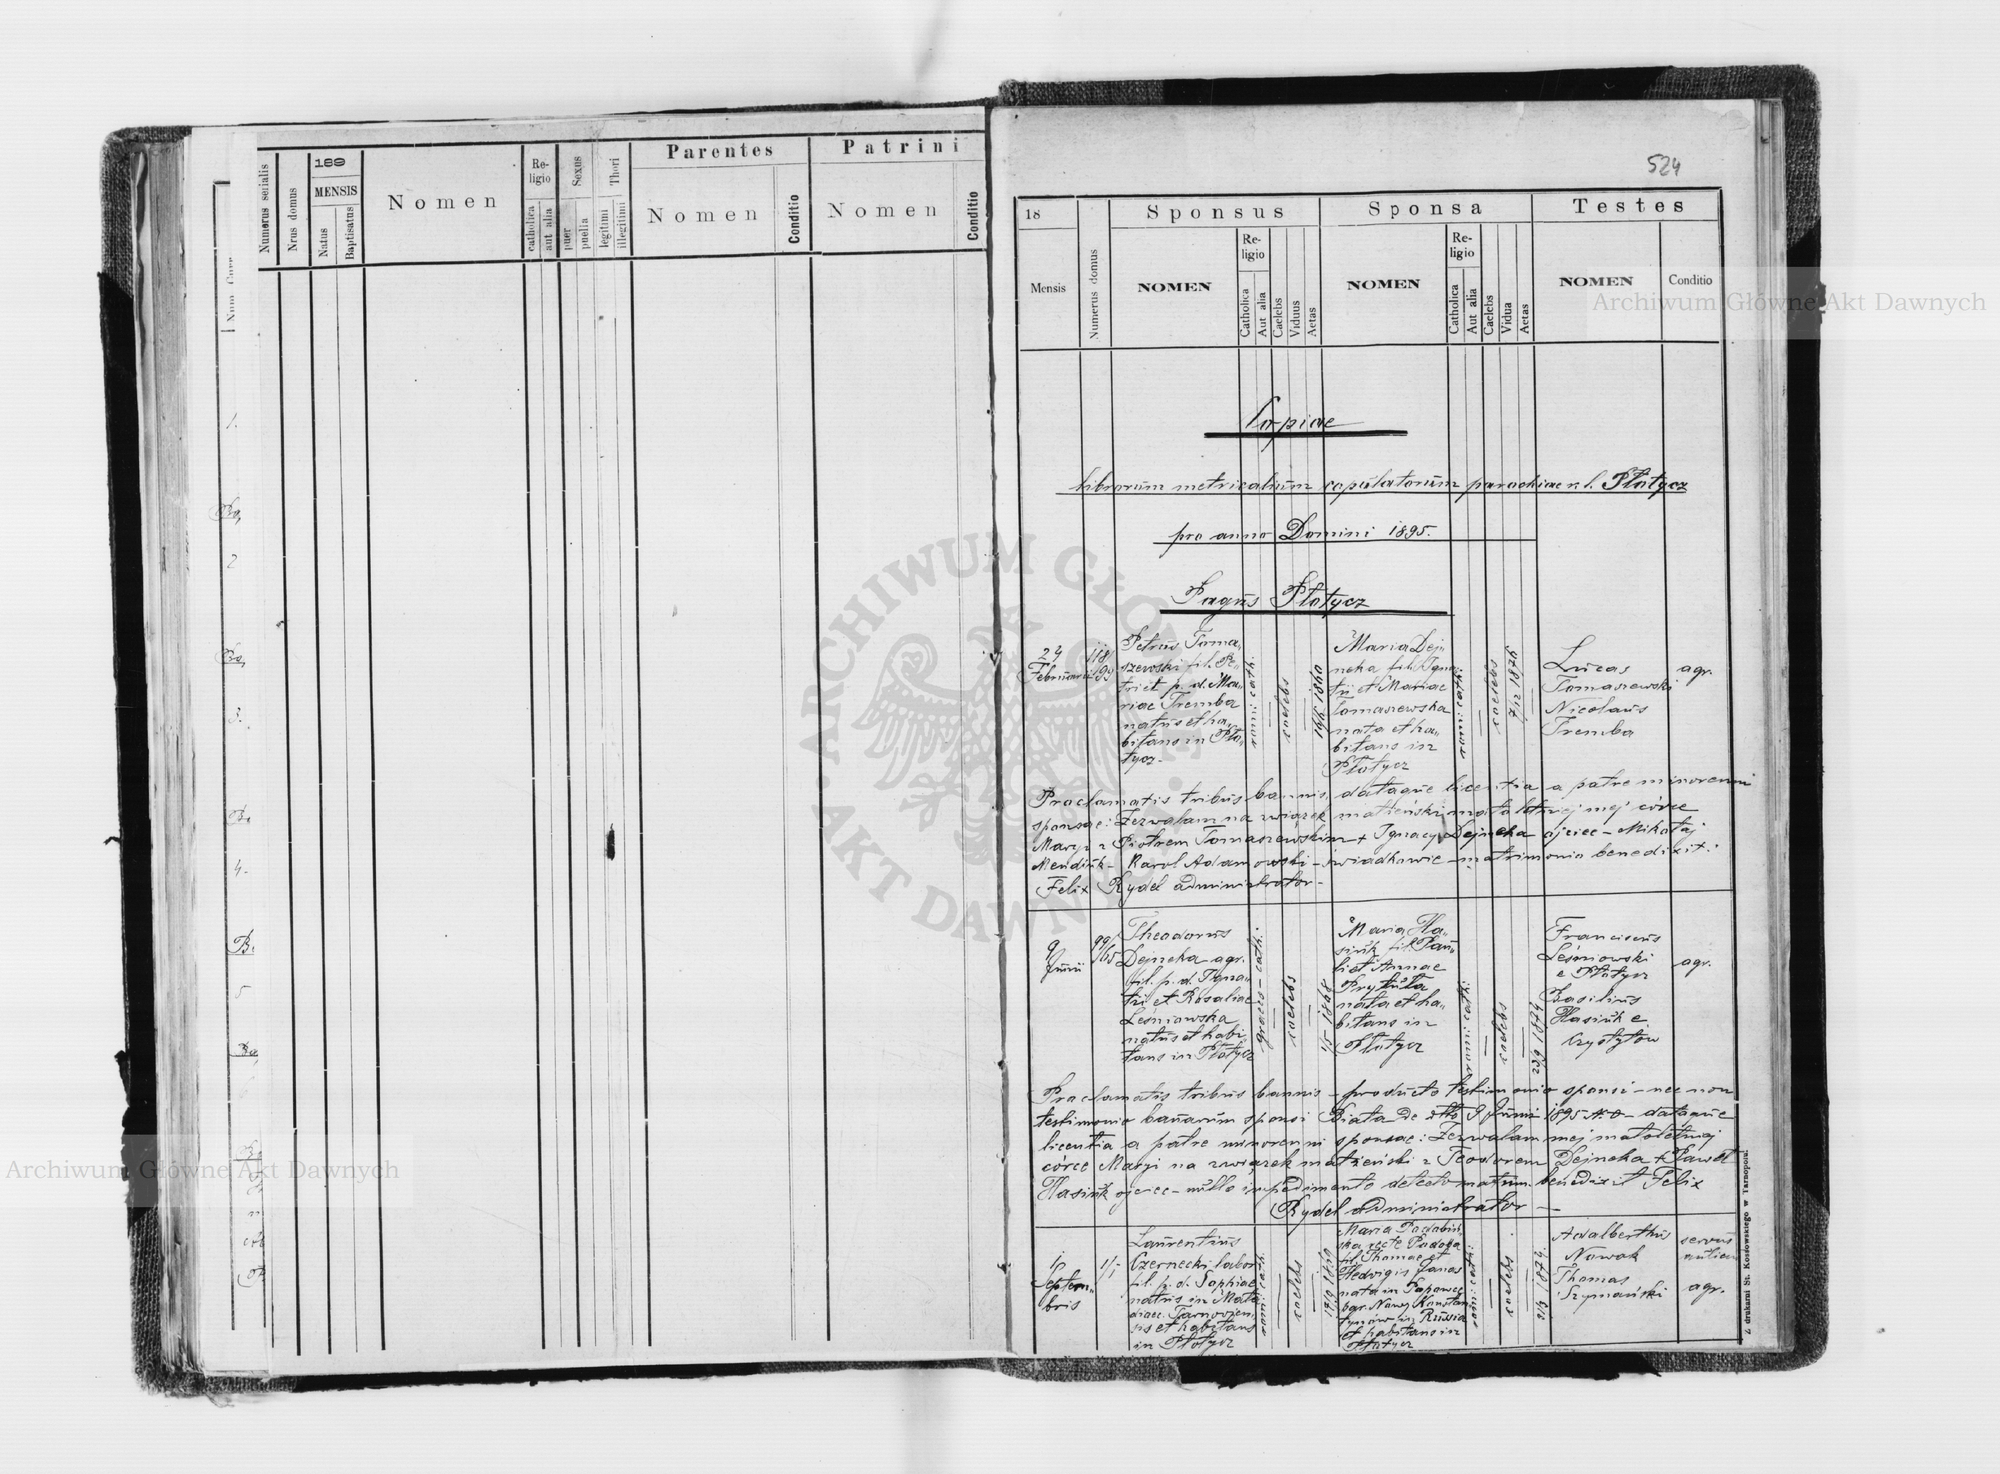 Numerus serialis
Nrus domus
189
MENSIS
Natus
Baptisatus
Nomen
Re-
ligio
catholica
aut alia
Sexus
puer
puella
Thori
legitimi
illegitimi
Parentes
Nomen
Conditio
Patrini
Nomen
Conditio
524
18
Mensis
Numerus domus
Sponsus
NOMEN
Re-
ligio
Catholica
Aut alia
Caelebs
Viduus
Aetas
Sponsa
NOMEN
Re-
ligio
Catholica
Aut alia
Caelebs
Vidua
Aetas
Testes
NOMEN
Conditio
Copiae
librorum metricalium copulatorum parochiae r. l. Płotycz
pro anno Domini 1895.
Pagus Płotycz
24
Februarii
118
99
Petrus Toma-
szewski fil. Pe-
tri et p. d. Ma-
riae Tremba
natus et ha-
bitans in Pło-
tycz
rom: cath:
caelebs
Maria Dej-
neka fil. Igna-
tii et Mariae
Tomaszewska
nata et ha-
bitans in
Płotycz
rom: cath:
caelebs
Lucas
Tomaszewski
Nicolaus
Tremba
agr.
Proclamatis tribus bannis, dataque licentia a patre minorenni
sponsae: Zezwalam na związek małżeński małoletniej mej córce
Maryi z Piotrem Tomaszewskim + Ignacy Dejneka ojciec – Mikołaj
Mendiuk – Karol Adamowski – świadkowie – matrimonio benedixit:
Felix Rydel administrator –
9
Junii
99/65
Theodorus
Dejneka agr.
fil. p. d. Igna-
tii et Rosaliae
Leśniowska
natus et habi
tans in Płotycz
graeco-cath:
caelebs
1/5 1868
Maria Ha-
siuk fil. Pau-
li et Annae
Prytuła
nata et ha-
bitans in
Płotycz
rom: cath:
caelebs
23/9 1874
Franciscus
Leśniowski
e Płotycz
Basilius
Hasiuk e
Czystyłów
agr.
Proclamatis tribus bannis – producto testimonio sponsi – nec non
testimonio bannorum sponsi Biała de dtto 9 Junii 1895 – dataque
licentia a patre minorenni sponsae: Zezwalam mej małoletniej
córce Maryi na związek małżeński z Teodorem Dejneka + Paweł
Hasiuk ojciec – nullo impedimento detecto matrim. benedixit Felix
Rydel administrator –
1
Septem-
bris
Laurentius
Czernecki labor
fil. p. d. Sophiae
natus in
dioec. Tarnovien
sis et habitans
in Płotycz
rom: cath:
caelebs
Maria
fil. Thomae et
Hedwigis
nata in
Russia
et habitans in
Płotycz
rom: cath:
caelebs
Adalbertus
Nowak
Thomas
Szymański
servus
agr.
Z drukarni St. Kossowskiego w Tarnopolu.
Archiwum Główne Akt Dawnych
Archiwum Główne Akt Dawnych
ARCHIWUM GŁÓWNE AKT DAWNYCH